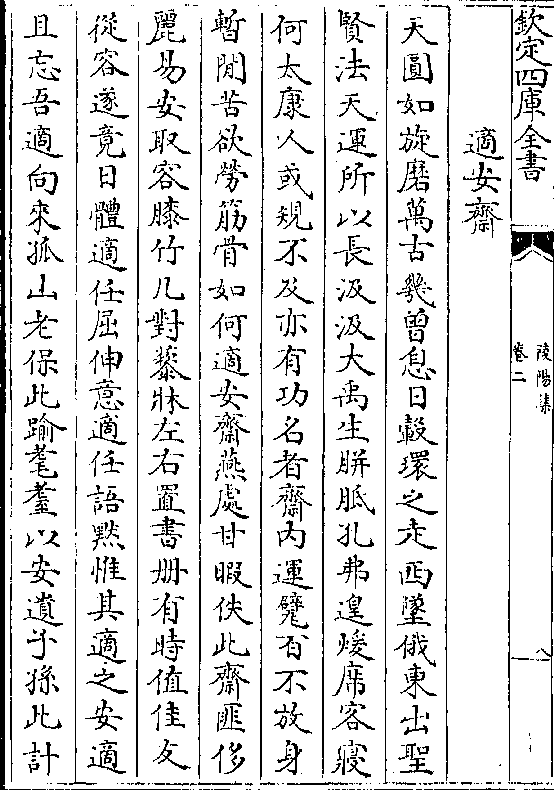 欽定四庫全書
陵陽集
卷二
八
適安齋
天圓如旋磨萬古幾曾息日轂環之走西墜俄東出聖
賢法天運所以長汲汲大禹生胼胝孔弗遑煖席客寢
何太康人或規不及亦有功名者齋内運甓百不放身
暫閒苦欲勞筋骨如何適安齋燕處甘暇佚此齋匪侈
麗易安取容膝竹几對藜牀左右置書册有時值佳友
從容遂竟日體適任屈伸意適任語黙惟其適之安適
且忘吾適向來孤山老保此踰耄耋以安遺子孫此計